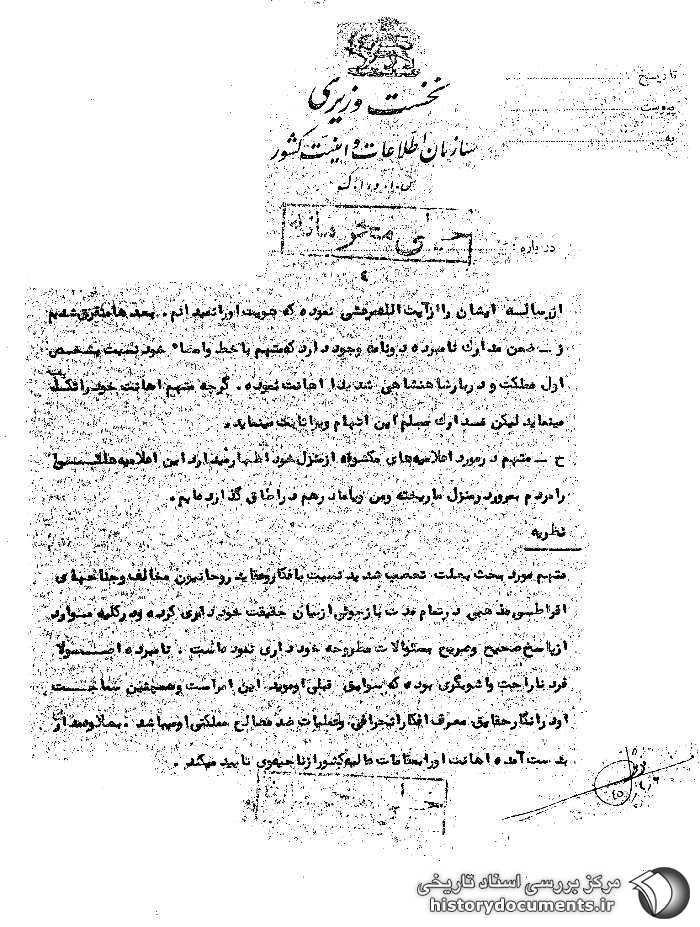 نخست وزیری
سازمان اطلاعات و امنیت کشور
س.ا.و.ا.ک
تاریخ
پیوست
به
درباره:
خیلی محرمانه
٤
از رساله ایشان را از آیت الله مرعشی نموده که هویت او را نمیدانم. بعدها متفرق شدیم
ز ــ ضمن مدارک نامبرده دو نامه وجود دارد که متهم با خط و امضاء خود نسبت بشخص
اول مملکت و دربار شاهنشاهی شدیدا اهانت نموده. گرچه متهم اهانت خود را
مینماید لیکن مدارک مسلم این اتهام ویرا ثابت مینماید.
ح ــ متهم در مورد اعلامیه‌های مکشوفه از منزل خود اظهار میدارد این اعلامیه‌ها
را مردم بمرور در منزل ما ریخته و من و یا مادرم در اطاق گذارده‌ایم.
نظریه
متهم مورد بحث بعلت تعصب شدید نسبت بافکار و عقاید روحانیون مخالف و جناحهای
افراطی مذهبی در تمام مدت بازجوئی از بیان حقیقت خودداری کرده و در کلیه موارد
از پاسخ صحیح و صریح بسئوالات مطروحه خودداری نموده است. نامبرده اصولا
فرد ناراحت و آشوبگری بوده که سوابق قبلی او موید این امر است و همچنین سماجت
او در انکار حقایق معرف افکار انحرافی و عملیات ضد مصالح مملکتی او میباشد. بعلاوه مدارک
بدست آمده اهانت او را بمقامات عالیه کشور از ناحیه وی تایید میکند.
مرکز بررسی اسناد تاریخی
historydocuments.ir